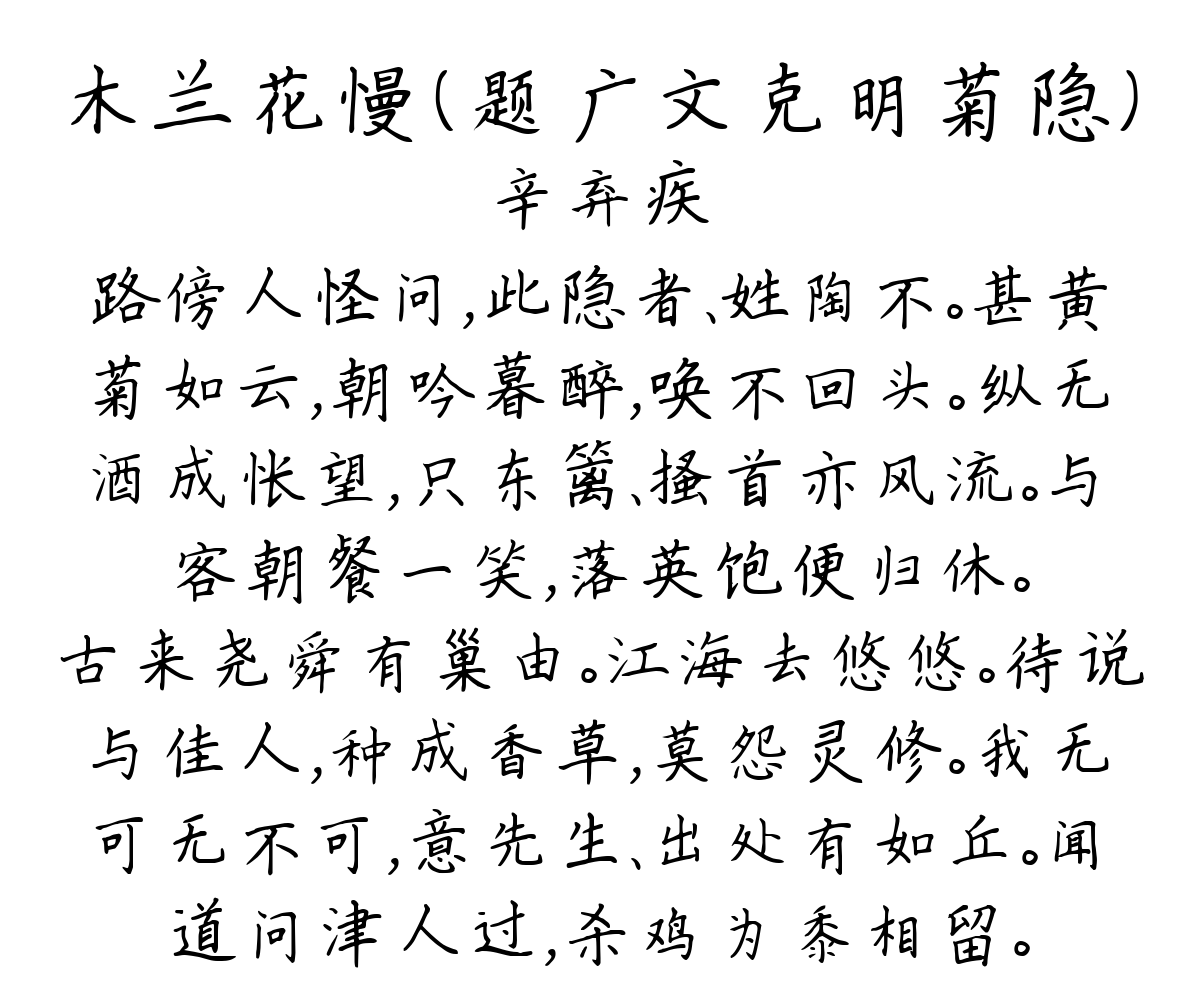 木兰花慢(题广文克明菊隐)
辛弃疾
路傍人怪问,此隐者、姓陶不。甚黄
菊如云,朝吟暮醉,唤不回头。纵无
酒成怅望,只东篱、搔首亦风流。与
客朝餐一笑,落英饱便归休。
古来尧舜有巢由。江海去悠悠。待说
与佳人,种成香草,莫怨灵修。我无
可无不可,意先生、出处有如丘。闻
道问津人过,杀鸡为黍相留。